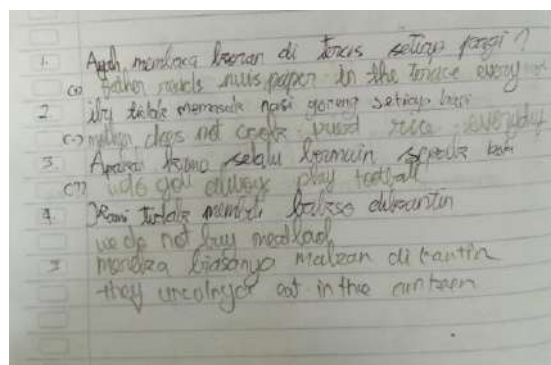 1. Ayah membaca koran di teras setiap pagi?
(+) father reads nuis paper in the terace every
2 iby tidak memasak nasi goreng setiap hari
(-) mother does not cook rice everyday
3. Apakah kamu selalu bermain sepak bola
(?) do you always play football
4. Kami tidak membeli bakso dikantin
we do not buy meatball
5 mereka biasanya makan di kantin
they eat in the